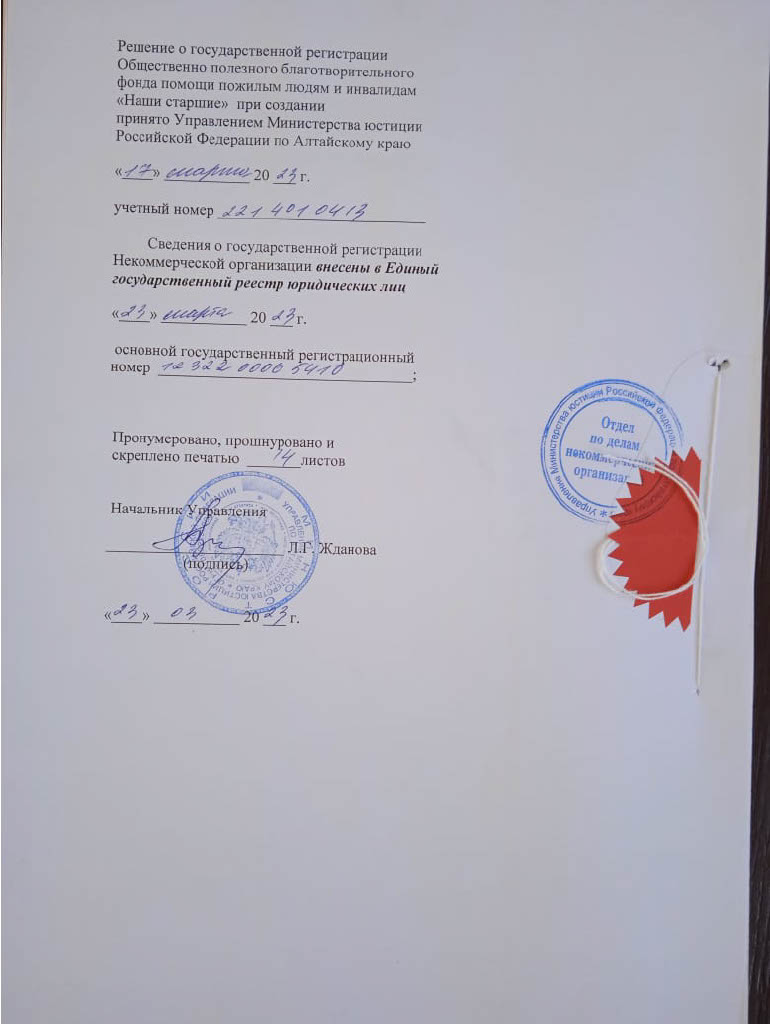 Решение о государственной регистрации
Общественно полезного благотворительного
фонда помощи пожилым людям и инвалидам
«Наши старшие» при создании
принято Управлением Министерства юстиции
Российской Федерации по Алтайскому краю
«17» марта 20 23 г.
учетный номер 2214010413
Сведения о государственной регистрации
Некоммерческой организации внесены в Единый
государственный реестр юридических лиц
«23» марта 20 23 г.
основной государственный регистрационный
номер 1232200005410;
Пронумеровано, прошнуровано и
скреплено печатью 14 листов
Начальник Управления
Л.Г. Жданова
(подпись)
«23» 03 20 23 г.
Управление Министерства юстиции Российской
Отдел
по делам